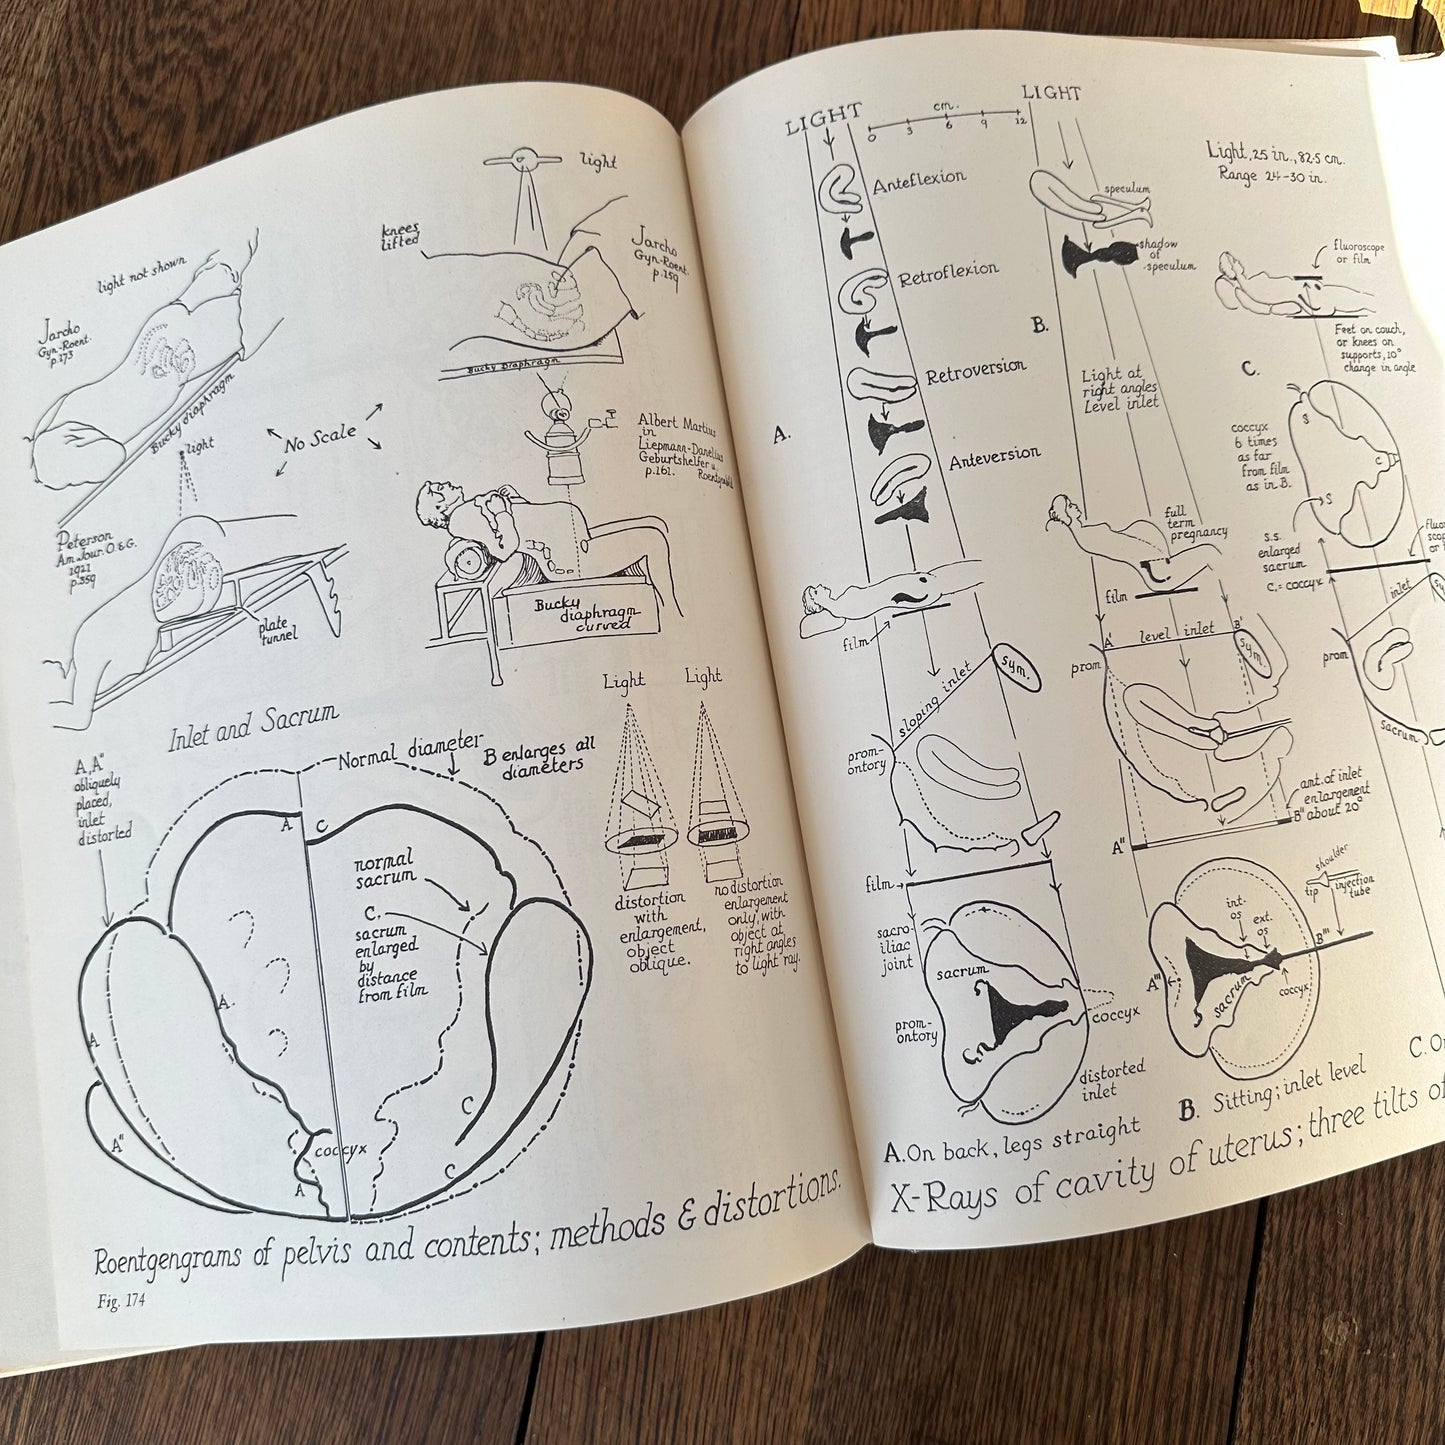 light
knees
lifted
Jarcho
Gyn-Roent.
p.159
light not shown
Jarcho
Gyn-Roent.
p.173
Bucky diaphragm
Bucky Diaphragm
No Scale
light
Albert Martius
in
Liepmann-Danelius
Geburtshelfer u.
p.161.
Peterson
Am Jour. O.&G.
1921
p.359
plate
tunnel
Bucky
diaphragm
curved
Inlet and Sacrum
Light
Light
A,A"
obliquely
placed,
inlet
distorted
Normal diameter
B enlarges all
diameters
A
C
normal
sacrum
C.
sacrum
enlarged
by
distance
from film
distortion
with
enlargement,
object
oblique.
no distortion
enlargement
only, with
object at
right angles
to light ray.
A.
A
A"
C
coccyx
A
C
Roentgengrams of pelvis and contents; methods & distortions.
Fig. 174
LIGHT
cm.
0 3 6 9 12
LIGHT
Light, 25 in., 82.5 cm.
Range 24-30 in.
Anteflexion
speculum
shadow
of
speculum
Retroflexion
fluoroscope
or film
B.
Feet on couch,
or knees on
supports, 10°
change in angle
Retroversion
Light at
right angles
Level inlet
C.
A.
Anteversion
coccyx
6 times
as far
from film
as in B.
S
C
S
full
term
pregnancy
S.S.
enlarged
sacrum
C. = coccyx
film
film
inlet
level inlet
A'
B'
sym.
prom
prom
sym.
sloping inlet
prom-
ontory
sacrum
amt. of inlet
enlargement
about 20°
B"
A"
film
sacro-
iliac
joint
shoulder
tip
injection
tube
int.
os
ext.
os
B"'
A"'
sacrum
coccyx
sacrum
prom-
ontory
coccyx
distorted
inlet
A. On back, legs straight
B. Sitting; inlet level
X-Rays of cavity of uterus; three tilts of